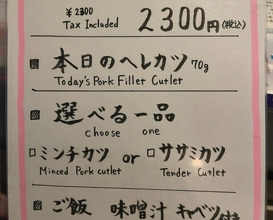 ¥2300
Tax Included 2300円(税込)
本日のヘレカツ 70g
Today's Pork Fillet Cutlet
選べる一品
choose one
□ミンチカツ or □ササミカツ
Minced Pork cutlet Tender Cutlet
ご飯 味噌汁 キャベツ付